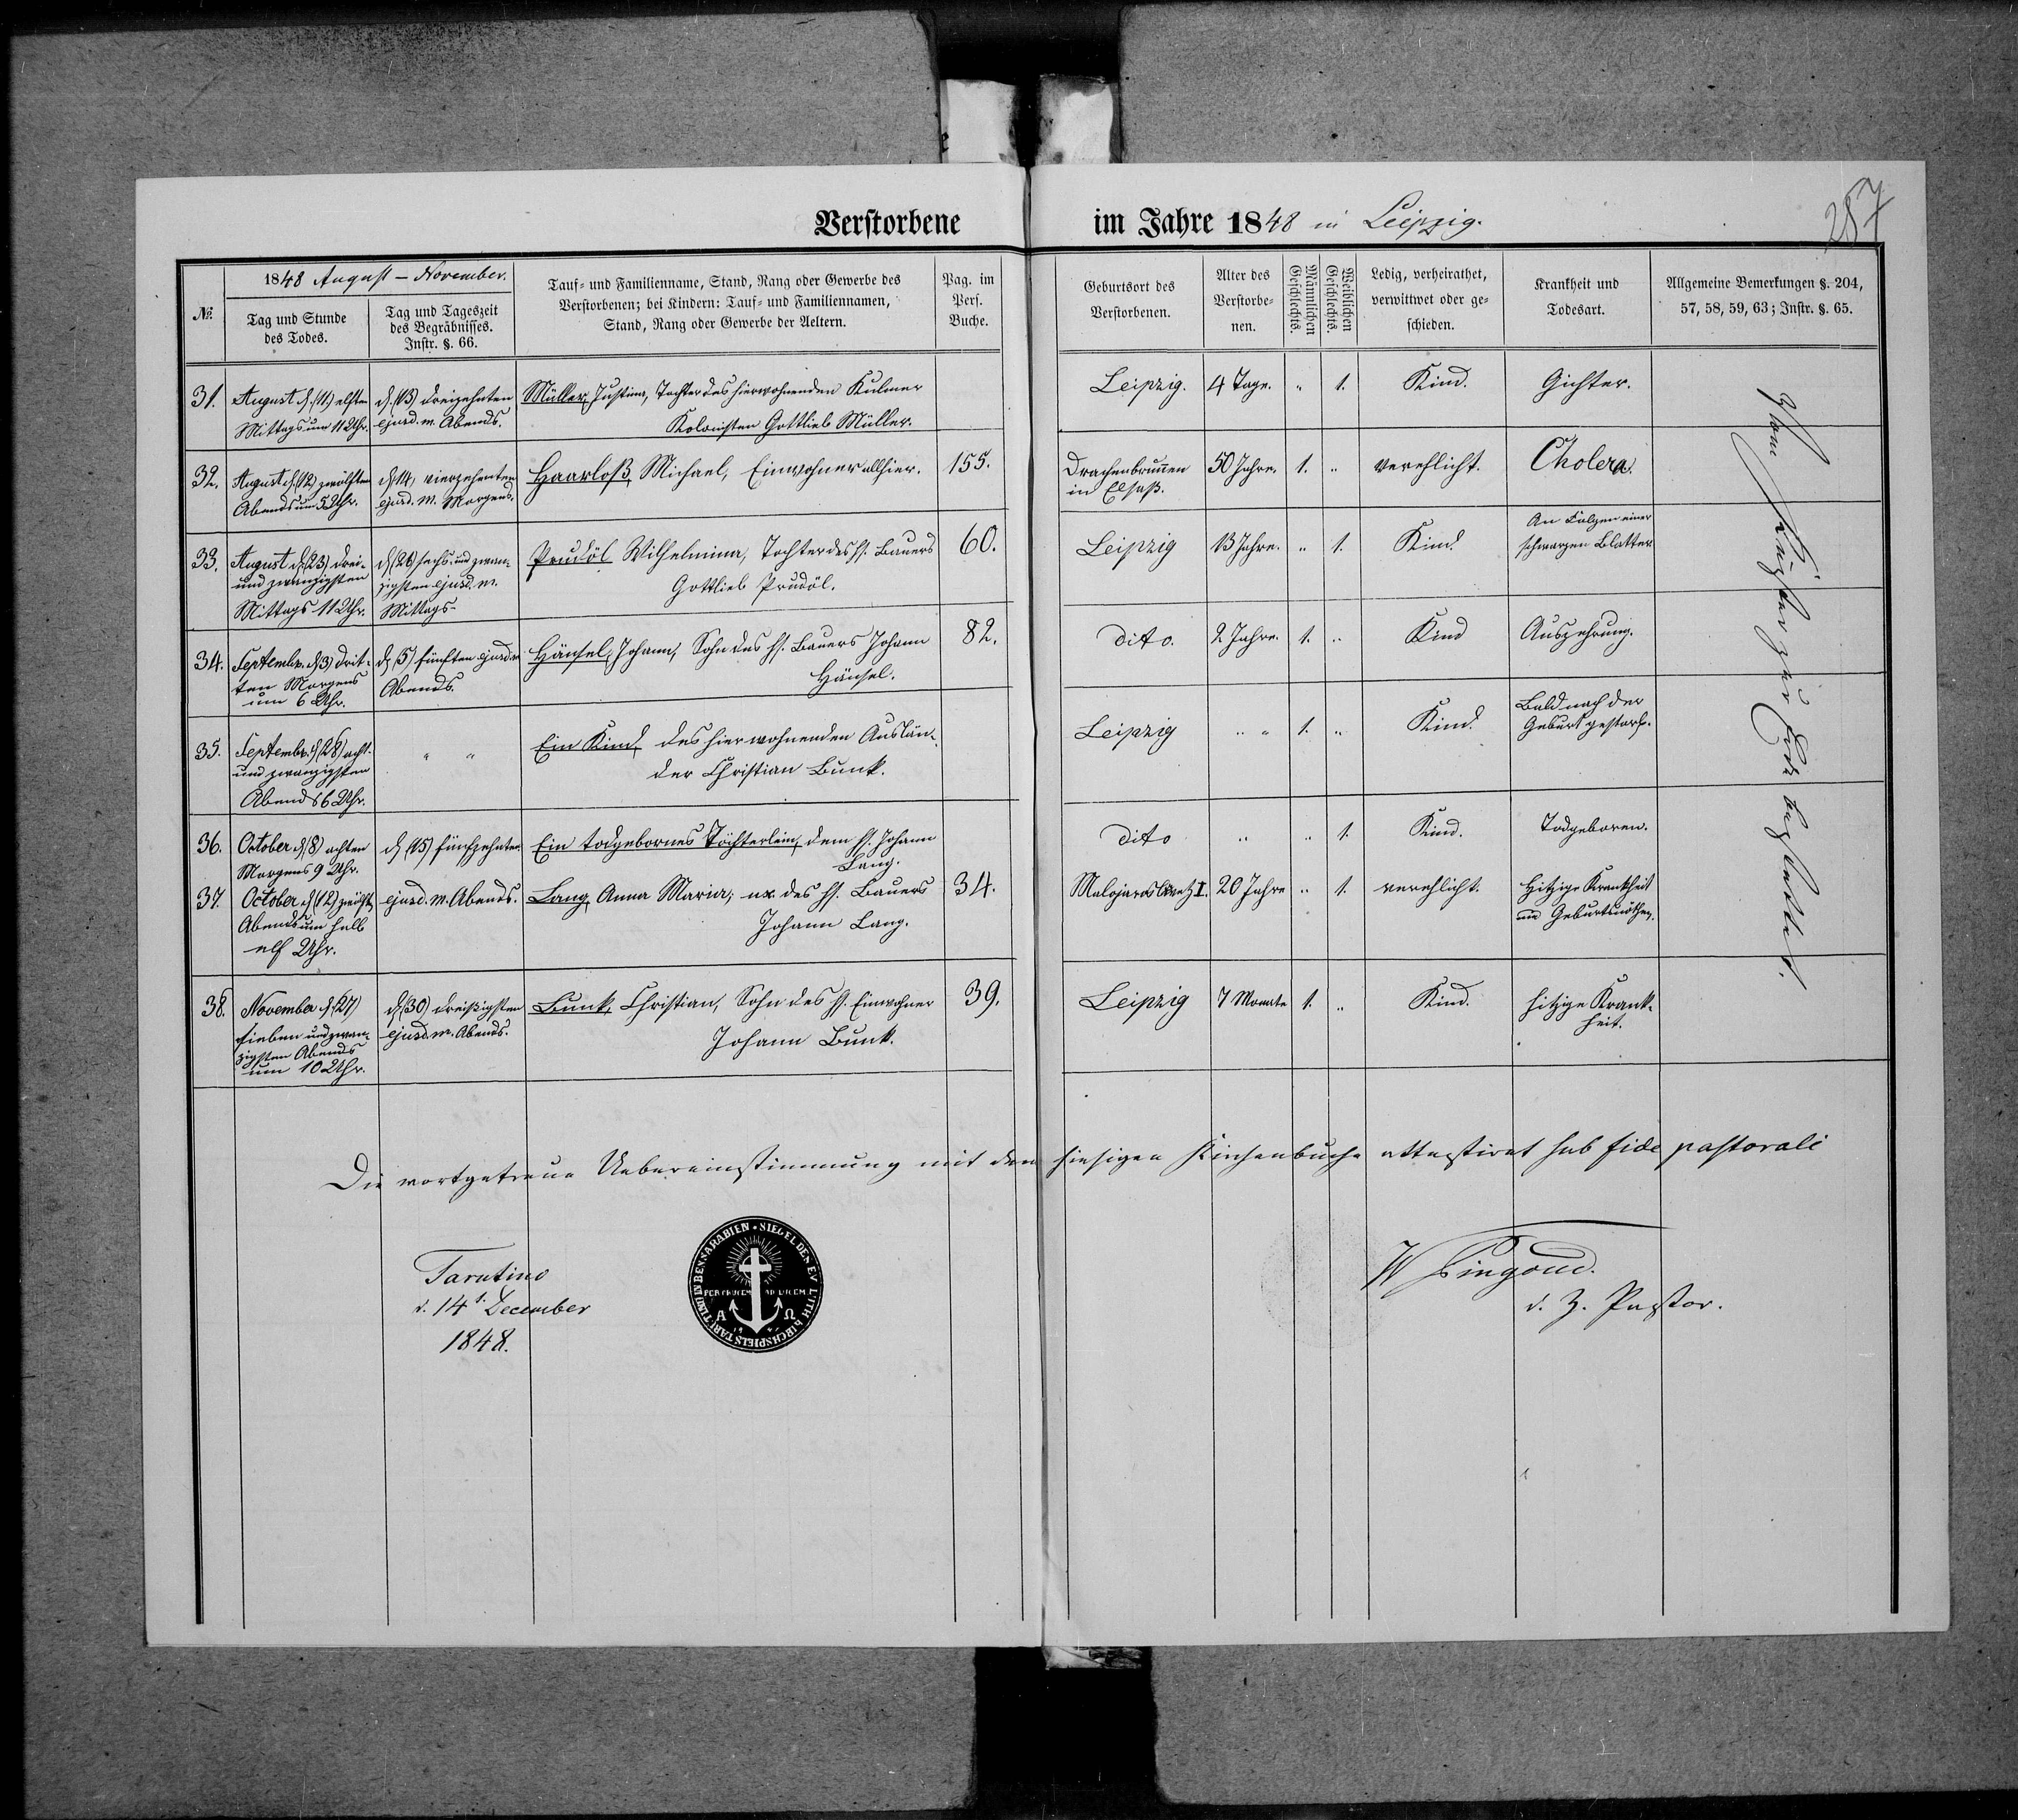 287
Verstorbene im Jahre 1848 in Leipzig.
№.
1848 August – November.
Tag und Stunde
des Todes.
Tag und Tageszeit
des Begräbnisses.
Instr. §. 66.
Tauf- und Familienname, Stand, Rang oder Gewerbe des
Verstorbenen; bei Kindern: Tauf- und Familiennamen,
Stand, Rang oder Gewerbe der Aeltern.
Pag. im
Pers.
Buche.
Geburtsort des
Verstorbenen.
Alter des
Verstorbe-
nen.
Männlichen
Geschlechts.
Weiblichen
Geschlechts.
Ledig, verheirathet,
verwittwet oder ge-
schieden.
Krankheit und
Todesart.
Allgemeine Bemerkungen §. 204,
57, 58, 59, 63; Instr. §. 65.
31.
August d. (11) elften
Mittags um 11 Uhr.
d. (13) dreizehnten
ejusd. m. Abends.
Müller, Justina, Tochter des hierwohnenden Kulmer
Kolonisten Gottlieb Müller.
Leipzig. 4 Tage. " 1. Kind. Gichter.
32.
August d. (12) zwölften
Abends um 5 Uhr.
d. 14, vierzehenten
ejusd. m. Morgens.
Haarloß, Michael, Einwohner allhier. 155.
Drachenbrunen
in Elsaß.
50 Jahre. 1. " verehlicht. Cholera.
33.
August d. (23) drei-
und zwanzigsten
Mittags 11 Uhr.
d. (26) sechs und zwan-
zigsten ejusd. m.
Mittags-
Prudöl Wilhelmina, Tochter des hs. Bauers 60.
Gottlieb Prudöl.
Leipzig 13 Jahre. " 1. Kind.
An Folgen einer
schwarzen Blatter
34.
Septembr. d. (3) drit-
ten Morgens
um 6 Uhr.
d. (5) fünften ejusd. m.
Abends.
Hänsel, Johann, Sohn des hs. Bauers Johann 82.
Hänsel.
dito. 2 Jahre. 1. " Kind Auszehrung.
35.
Septembr. d. (28) acht-
und zwanzigsten
Abends 6 Uhr.
" "
Ein Kind, des hier wohnenden Auslän-
der Christian Bunk.
Leipzig " " 1. " Kind.
Bald nach der
Geburt gestorb.
36.
October d. (8) achten
Morgens 9 Uhr.
d. (15) fünfzehnten
Ein todgebornes Töchterlein, dem hs. Johann
Lang.
dito " " 1. Kind. Todgeboren.
37.
October d. (12) zwölft
Abends um halb
elf Uhr.
ejusd. m. Abends.
Lang, Anna Maria, ux. des hs. Bauers 34.
Johann Lang.
Malojaroslawetz I. 20 Jahre " 1. verehlicht.
Hitzige Krankheit
Geburtsnöthen.
38.
November d. (27)
sieben und zwan-
zigsten Abends
um 10 Uhr.
d. (30) dreißigsten
ejusd. m. Abends.
Bunk, Christian, Sohn des hs. Einwohner 39.
Johann Bunk.
Leipzig 7 Monate 1. " Kind.
hitzige Krank-
heit.
Vom Küster zur Erde bestattet.
Die wortgetreue Uebereinstimmung mit dem hiesigen Kirchenbuche attestiret sub fide pastorali
Tarutino
d. 14t. December
1848.
SIEGEL DES EV LUTH KIRCHSPIELS TARUTINO IN BESSARABIEN
PER CRUCEM AD LUCEM
A Ω
W Pingoud.
d. Z. Pastor.